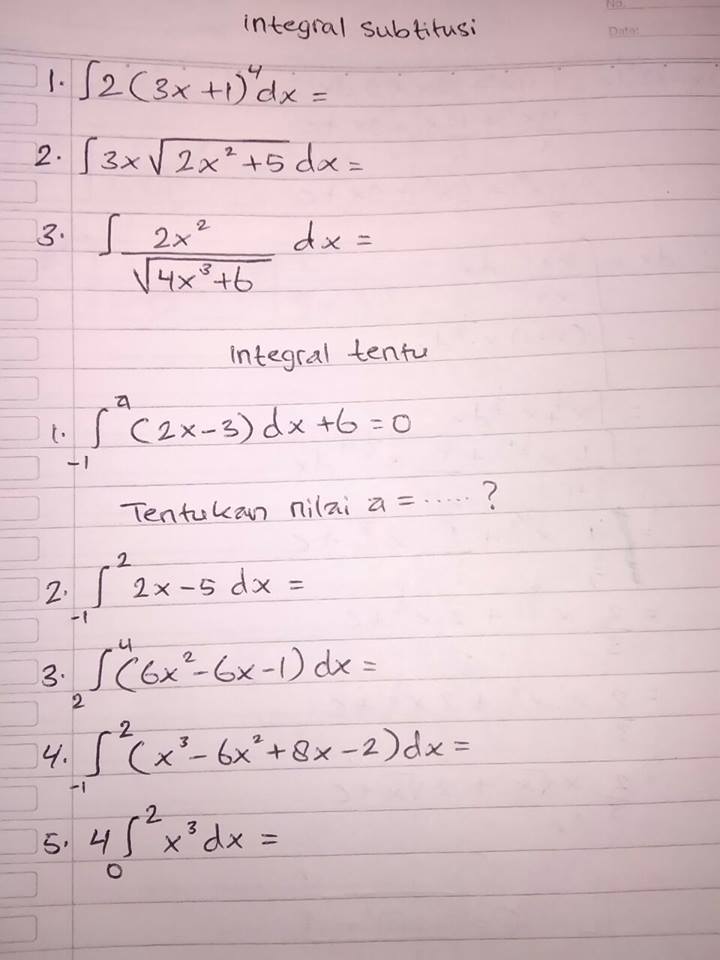 No.
Date:
integral subtitusi
1. ∫2(3x+1)⁴dx =
2. ∫3x√(2x²+5) dx =
3. ∫ 2x²/√(4x³+6) dx =
integral tentu
1. ∫₋₁ᵃ (2x-3) dx +6 = 0
Tentukan nilai a = ..... ?
2. ∫₋₁² 2x-5 dx =
3. ∫₂⁴ (6x²-6x-1) dx =
4. ∫₋₁² (x³-6x²+8x-2)dx =
5. 4∫₀² x³dx =